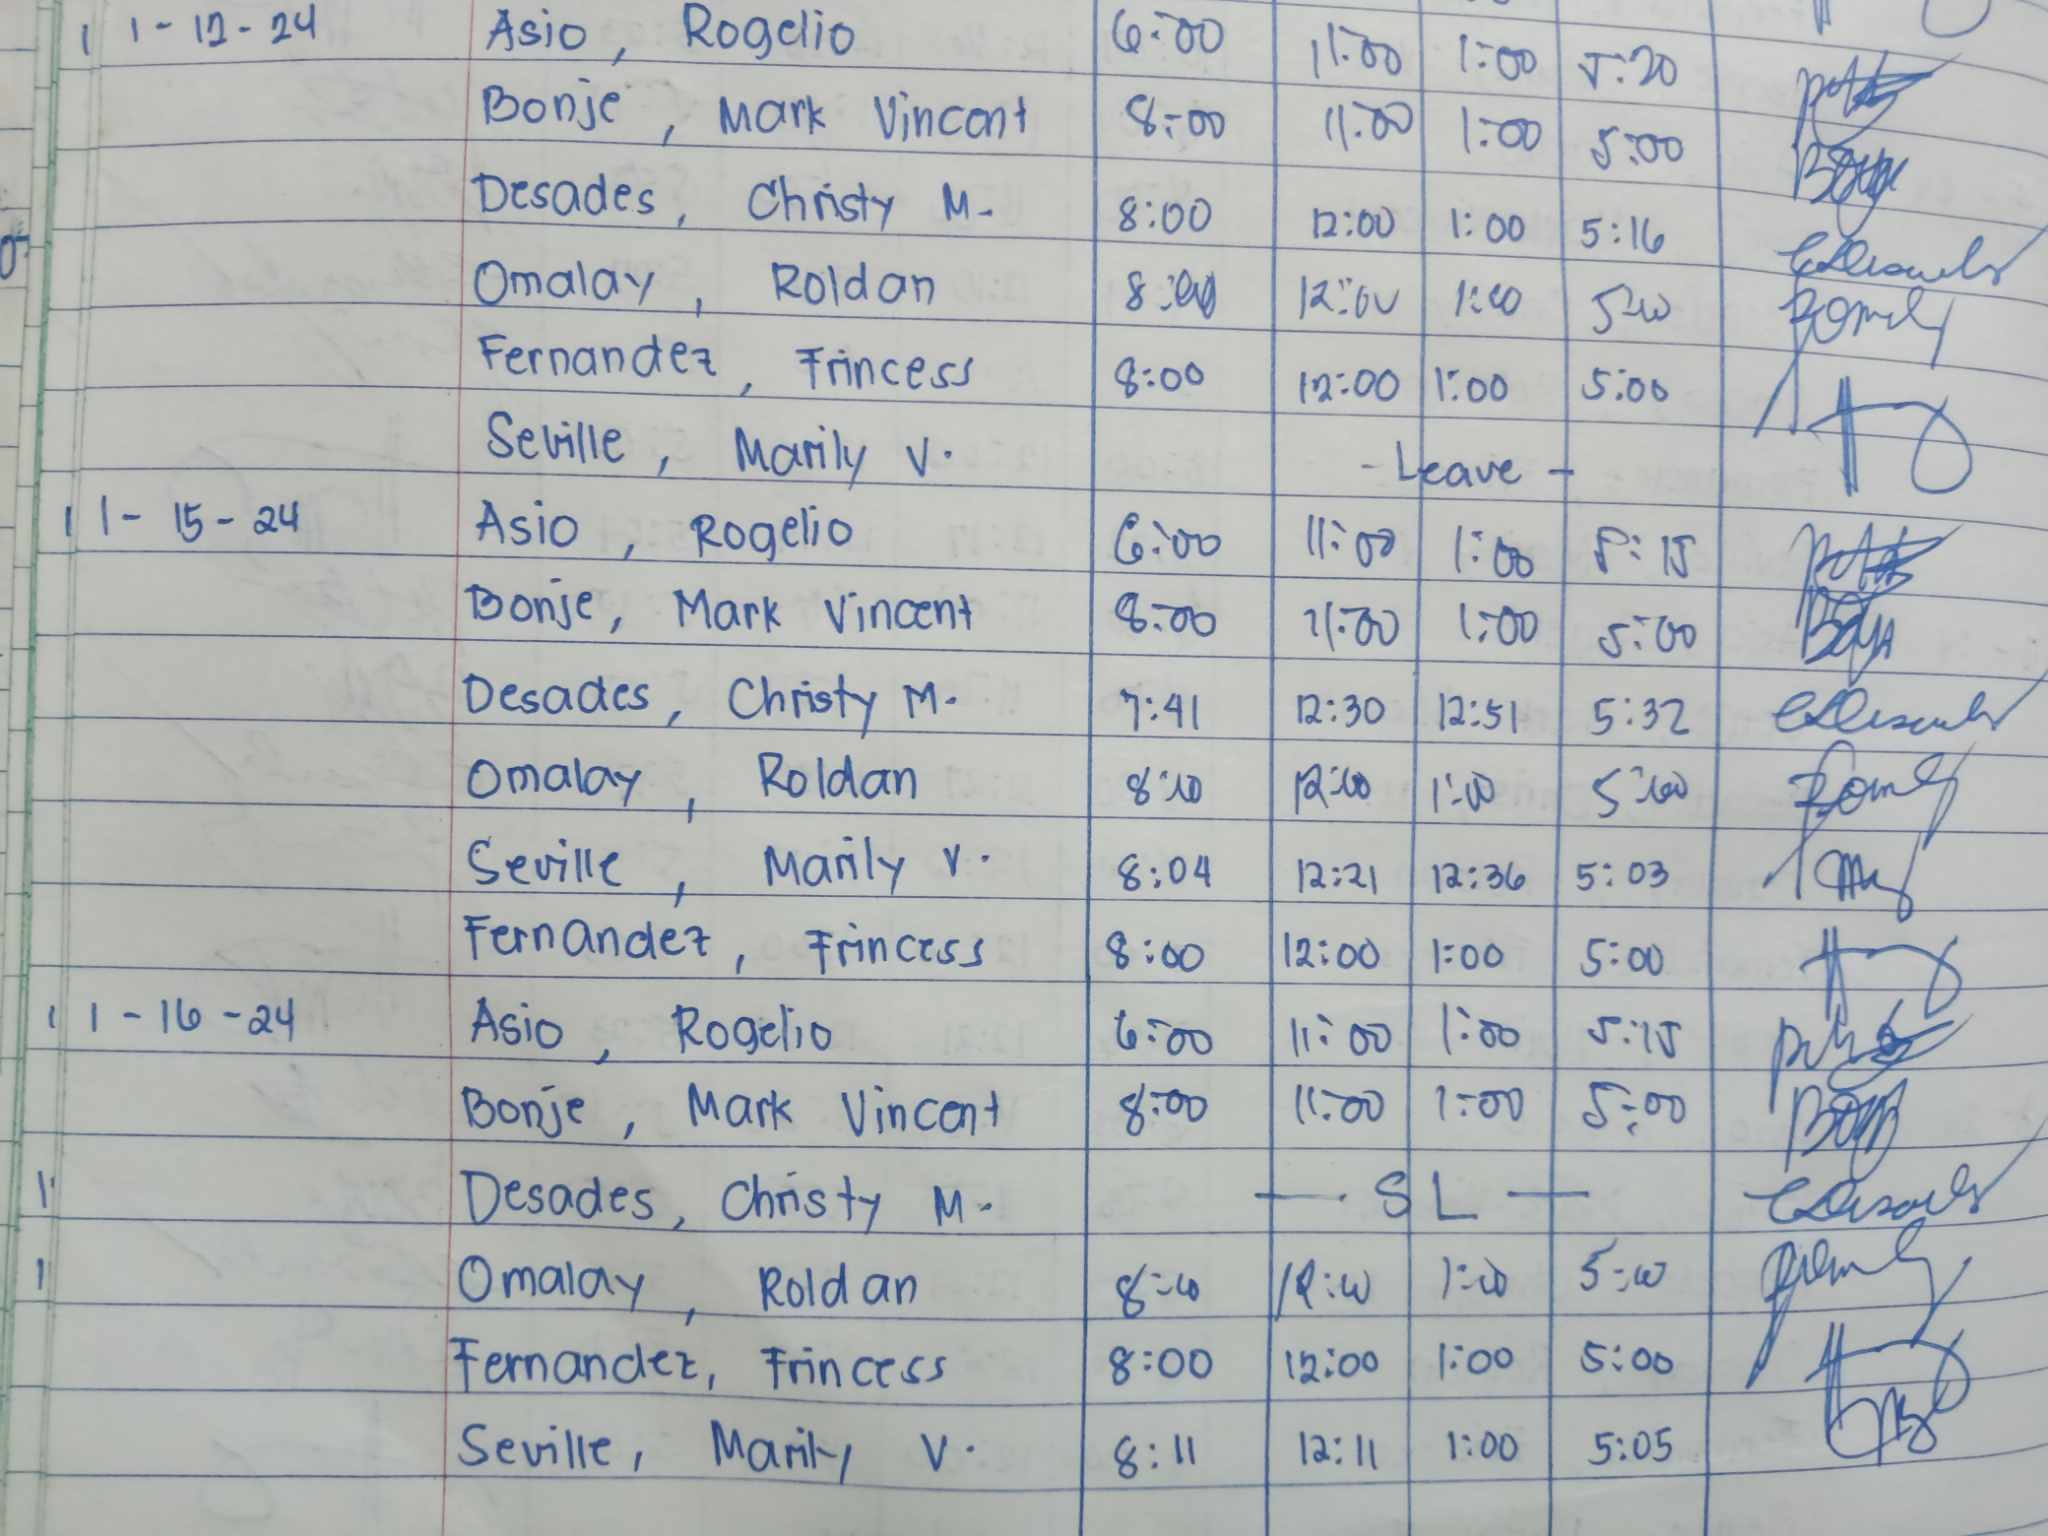 11-12-24 Asio, Rogelio 6:00 11:00 1:00 5:20
Bonje, Mark Vincent 8:00 11:00 1:00 5:00
Desades, Christy M. 8:00 12:00 1:00 5:16
Omalay, Roldan 8:00 12:00 1:00 5:00
Fernandez, Frincess 8:00 12:00 1:00 5:00
Seville, Marily V. - Leave -
11-15-24 Asio, Rogelio 6:00 11:00 1:00 5:15
Bonje, Mark Vincent 8:00 11:00 1:00 5:00
Desades, Christy M. 7:41 12:30 12:51 5:32
Omalay, Roldan 8:00 12:00 1:00 5:00
Seville, Marily V. 8:04 12:21 12:36 5:03
Fernandez, Frincess 8:00 12:00 1:00 5:00
11-16-24 Asio, Rogelio 6:00 11:00 1:00 5:15
Bonje, Mark Vincent 8:00 11:00 1:00 5:00
Desades, Christy M. — SL —
Omalay, Roldan 8:00 12:00 1:00 5:00
Fernandez, Frincess 8:00 12:00 1:00 5:00
Seville, Marily V. 8:11 12:11 1:00 5:05